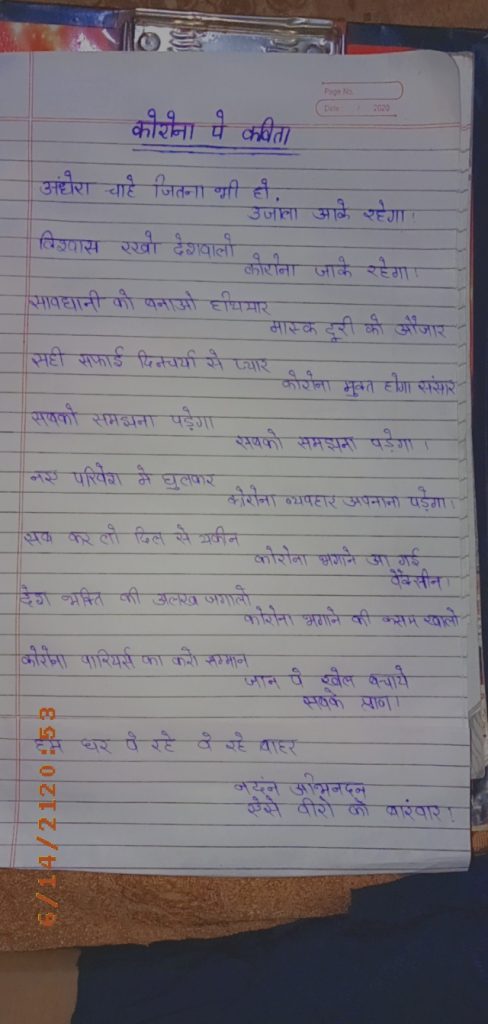 Page No.
Date / 2020
कोरोना पे कविता
अंधेरा चाहे जितना भी हो,
उजाला आके रहेगा।
विश्वास रखो देशवालो
कोरोना जाके रहेगा।
सावधानी को बनाओ हथियार
मास्क दूरी को औजार
सही सफाई दिनचर्या से प्यार
कोरोना मुक्त होगा संसार
सबको समझना पड़ेगा
सबको समझना पड़ेगा।
नए परिवेश मे घुलकर
कोरोना व्यवहार अपनाना पड़ेगा।
सब कर लो दिल से यकीन
कोरोना भगाने आ गई
वैक्सीन।
देश भक्ति की अलख जगालो
कोरोना भगाने की कसम खालो
कोरोना वारियर्स का करो सम्मान
जान पे खेल बचाये
सबके प्राण।
हम घर पे रहे वे रहे बाहर
अभिनदन
ऐसे वीरो को बारंबार।
6/14/21 20:53